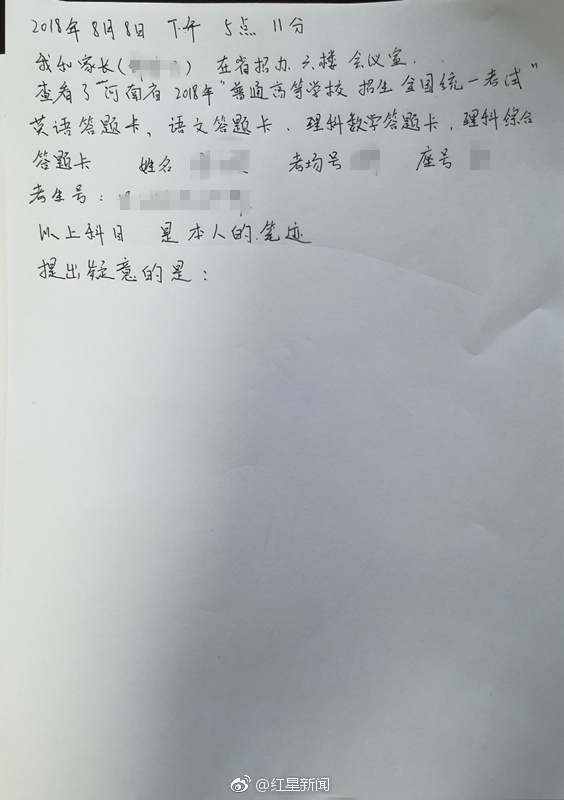 2018年8月8日 下午 5点11分
我和家长( ) 在省招办六楼会议室.
查看了"河南省2018年"普通高等学校招生全国统一考试"
英语答题卡、语文答题卡、理科数学答题卡、理科综合
答题卡 姓名 考场号 座号
考生号:
以上科目 是本人的笔迹
提出疑意的是:
@红星新闻